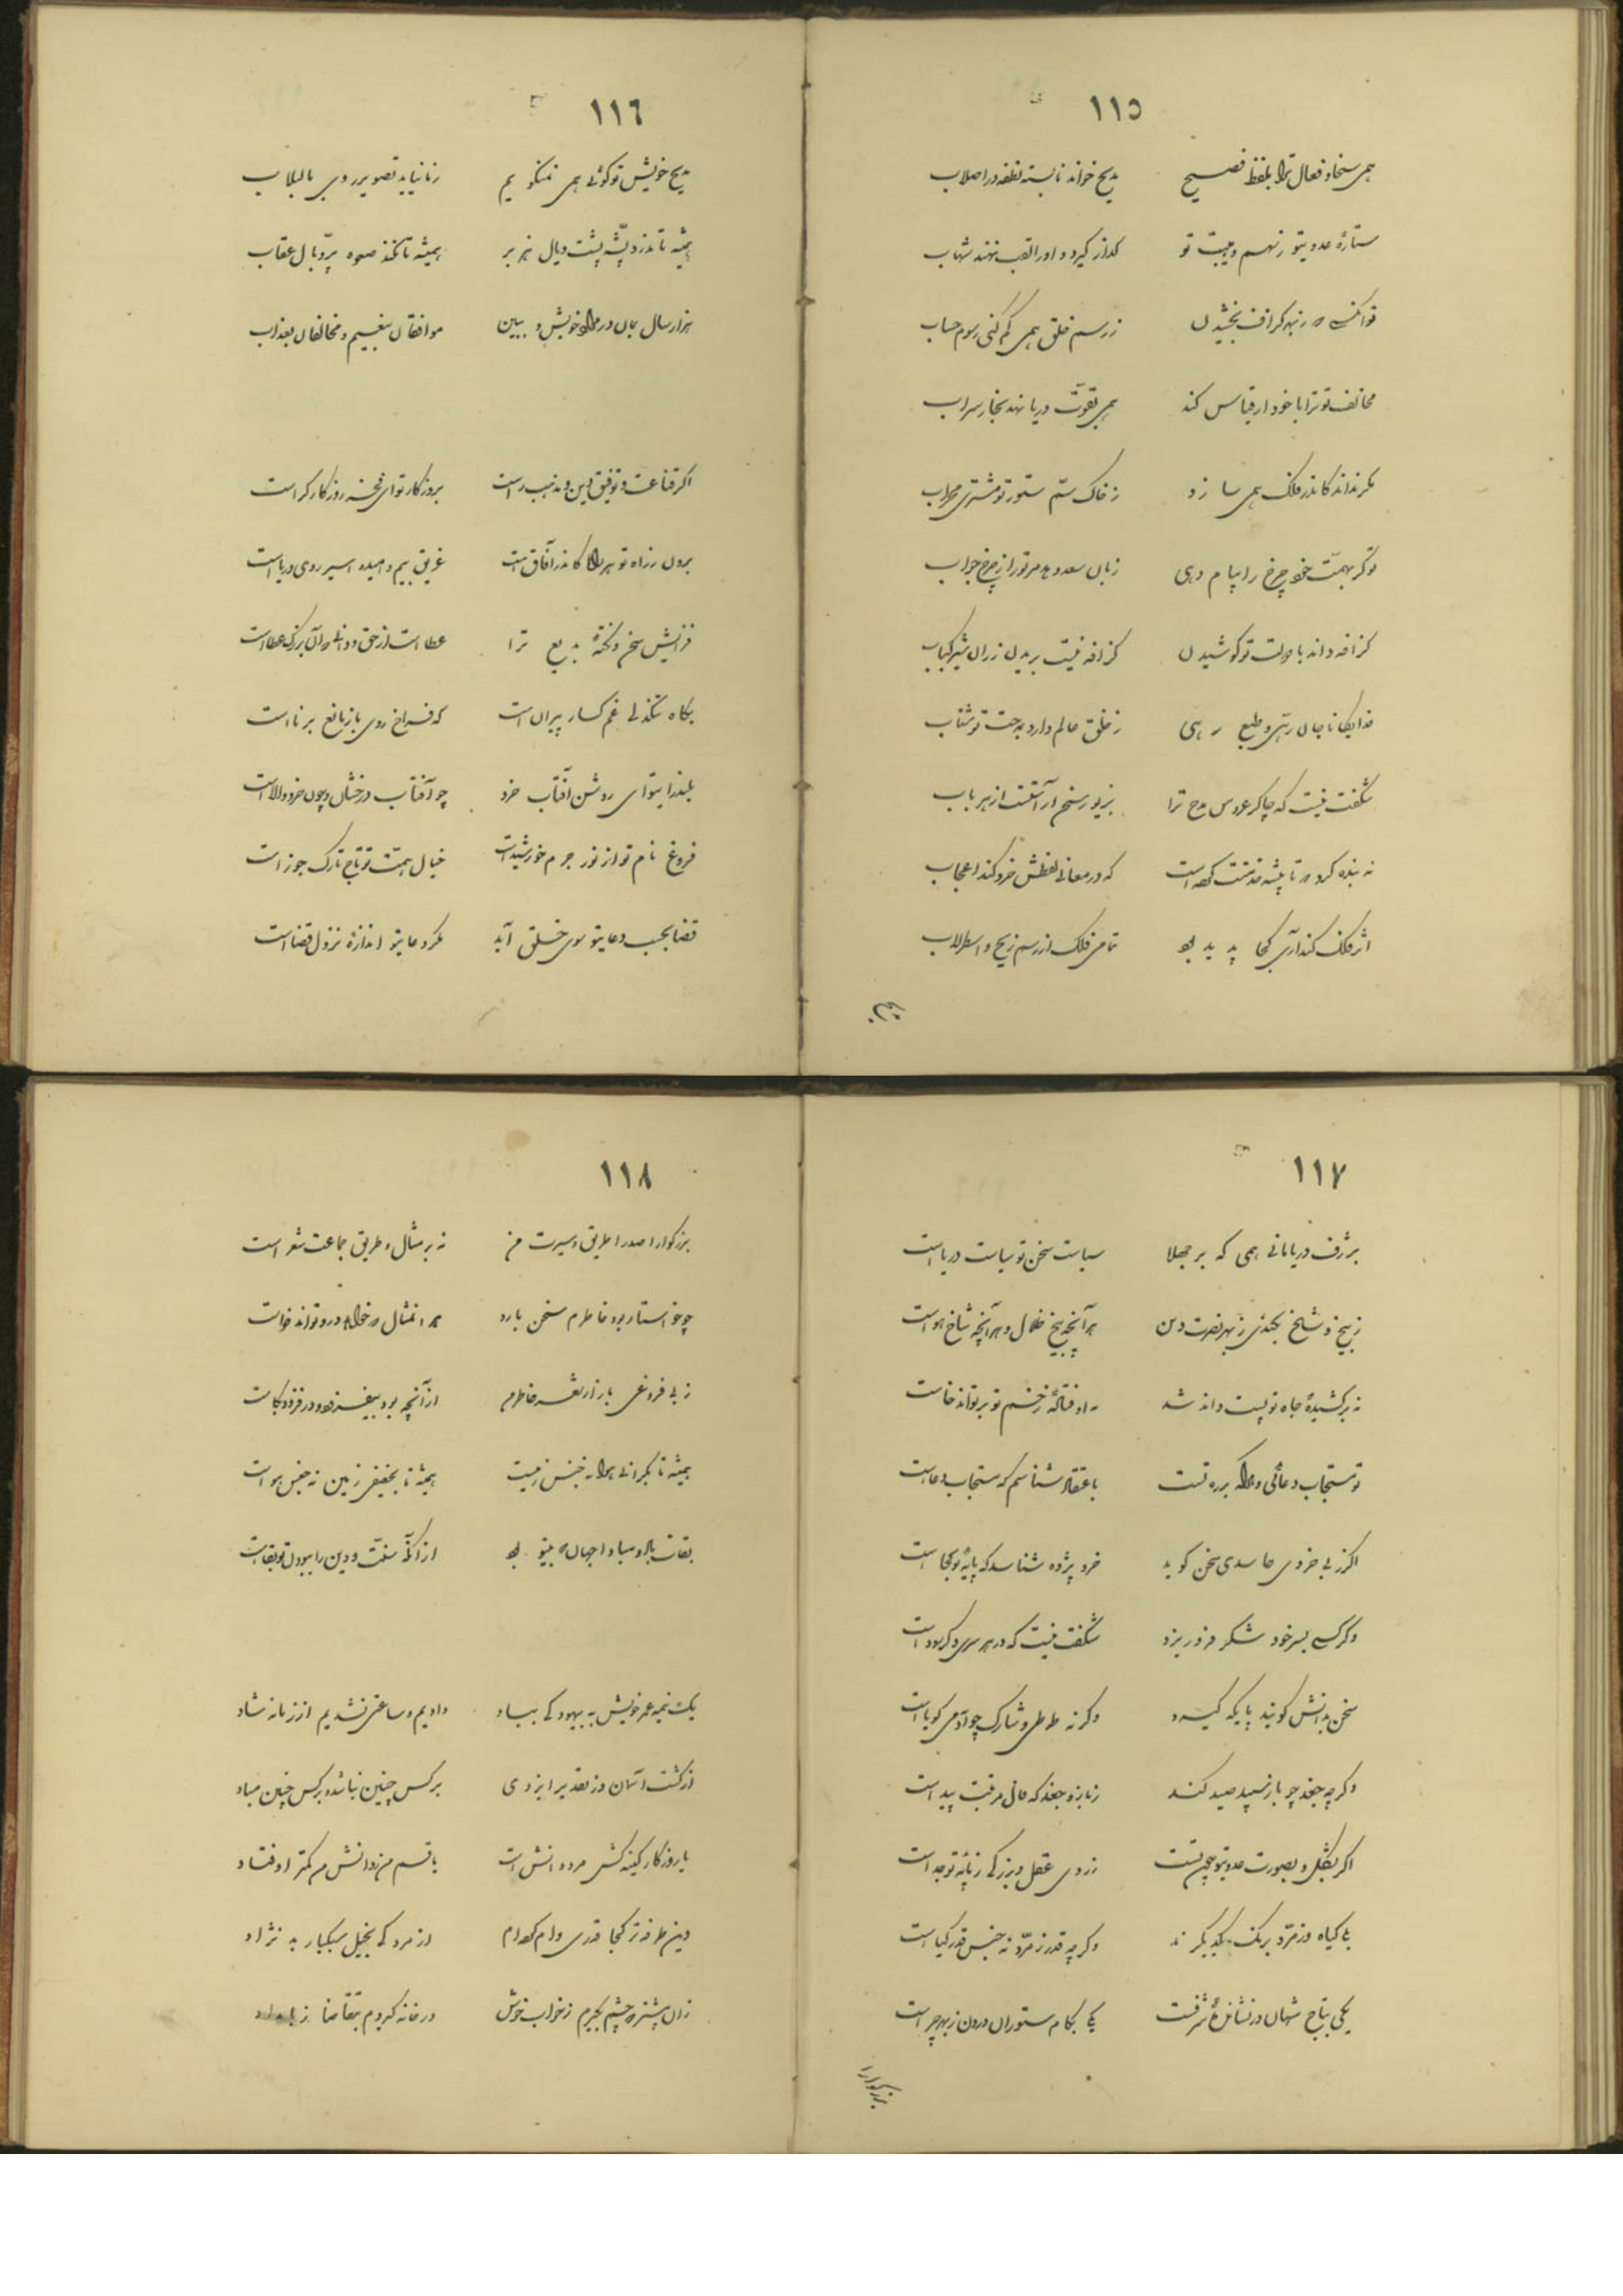 ١١٥
همی سخا و فعال ترا بلفظ فصیح مدیح خواند نابسته نطفه در اصلاب
ستارهٔ عدوی تو ز سهم و هیبت تو گداز گیرد و او را لقب نهند شهاب
تو آنکسی ز نه گزاف بخشیدن ز رسم خلق همی کم کنی رسوم حساب
مخالف تو ترا با خود ار قیاس کند همی بقوّت دریا نهد بخار سراب
مگر نداند کاندر فلک همی سازد ز خاک سمّ ستور تو مشتری محراب
وگر بهمّت خود چرخ را پیام دهی زبان سعد دهد مر ترا ز چرخ جواب
گزافه داند با دولت تو کوشیدن گزافه نیست بریدن ز ران شیر کباب
خدایگانا جان رهی و طبع رهی ز خلق عالم دارد به مدحت تو شتاب
شگفت نیست که چاکر عروس مدح ترا بزیور سخن آراستست از هر باب
نه بنده کرد تا پیشه خدمتت کرده است که در معانی لفظش خرد کند اعجاب
اثر فلک کند آری کجا پدید بود تمامی فلک از رسم زیج و اسطرلاب
مدیح
١١٦
مدیح خویش تو گوئی همی نمیگویم زنان نیاید تصویر روی بالبلاب
همیشه تا ندرد پشّه پشت و یال هزبر همیشه تا نکند صعوه پرّ و بال عقاب
هزار سال بمان در مراد خویش و ببین موافقان بنعیم و مخالفان بعذاب
اگر قناعت و توفیق دین و مذهب راست بروزگار تو ای فخر روزگار که راست
برون ز راه تو هر راه کاندر آفاق است غریق بیم و امید و اسیر روی و ریاست
فزایش سخن و نکتهٔ بدیع ترا عطاست از حق و دانی آن بزرگ عطاست
بگاه تنگدلی غمگسار پیران است گه فراخ روی باز مانع برناست
بلند رایتو ای روشن آفتاب خرد چو آفتاب درخشان و چون خرد والاست
فروغ نام تو از نور جرم خورشید است خیال همّت تو تاج تارک جوزاست
قضا بحسب دعای تو سوی خلق آید مگر دعای تو اندازهٔ نزول قضاست
١١٧
بژرف دریا مانی همی که بر جهلا سیاست سخن تو سیاست دریاست
ز بیخ و شاخ بکندی ز بهر نصرت دین هر آنچه بیخ ضلال و هر آنچه شاخ هواست
نه برکشیدهٔ جاه تو پست داند شد نه اوفتادهٔ زخم تو برتواند خاست
تو مستجاب دعائی و هر که بر ره تست باعتقاد شناسم که مستجاب دعاست
اگر ز بی خردی حاسدی سخن گوید خرد پژوه شناسد که پایهٔ تو کجاست
وگر کسی بسر خود شکر فرو ریزد شگفت نیست که در هر سری دگر سوداست
سخن بدانش گویند پایگه گیرد وگرنه طوطی و شارک چو آدمی گویاست
وگرچه جغد چو باز سپید صید کند ز باز و جغد که حال و مرتبت پیداست
اگر بشکل و بصورت عدوی تو چون تست ز روی عقل و بزرگی ز پایهٔ تو جداست
بلی گیاه و زمرّد برنگ یکدگرند وگرچه قدر زمرّد نه جنس قدر گیاست
یکی بتاج شهان در نشانهٔ شرفست یکی بکام ستوران درون ز بهر چراست
بزرگوارا
١١٨
بزرگوارا صدرا طریق و سیرت من نه بر مثال و طریق جماعت شعراست
چو خواستار بود خاطرم سخن بارد هم از مثال در خواه در و تواند خواست
ز بی فروغی بازار نقد خاطرم از آنچه بود بیفسرد و در فزود بکاست
همیشه تا بگرانی هوا نه جنس زمیست همیشه تا بخفیفی زمین نه جنس هواست
بقات باد و مبادا جهان بیتو بود از آنکه سنّت و دین را ببودن تو بقاست
یک نیمه عمر خویش به بیهودگی بباد دادیم و ساعتی نشدیم از زمانه شاد
از گشت آسمان و ز تقدیر ایزدی بر کس چنین نباشد و بر کس چنین مباد
یا روزگار کینه کش مرد دانش است یا قسم من ز دانش من کمتر اوفتاد
وین طرفه تر کجا قدری وام کرده ام از مردکی بخیل سبکبار بد نژاد
زان پیشتر که چشم گیرم ز خواب خوش در خانه گیردم بتقاضا ز بامداد